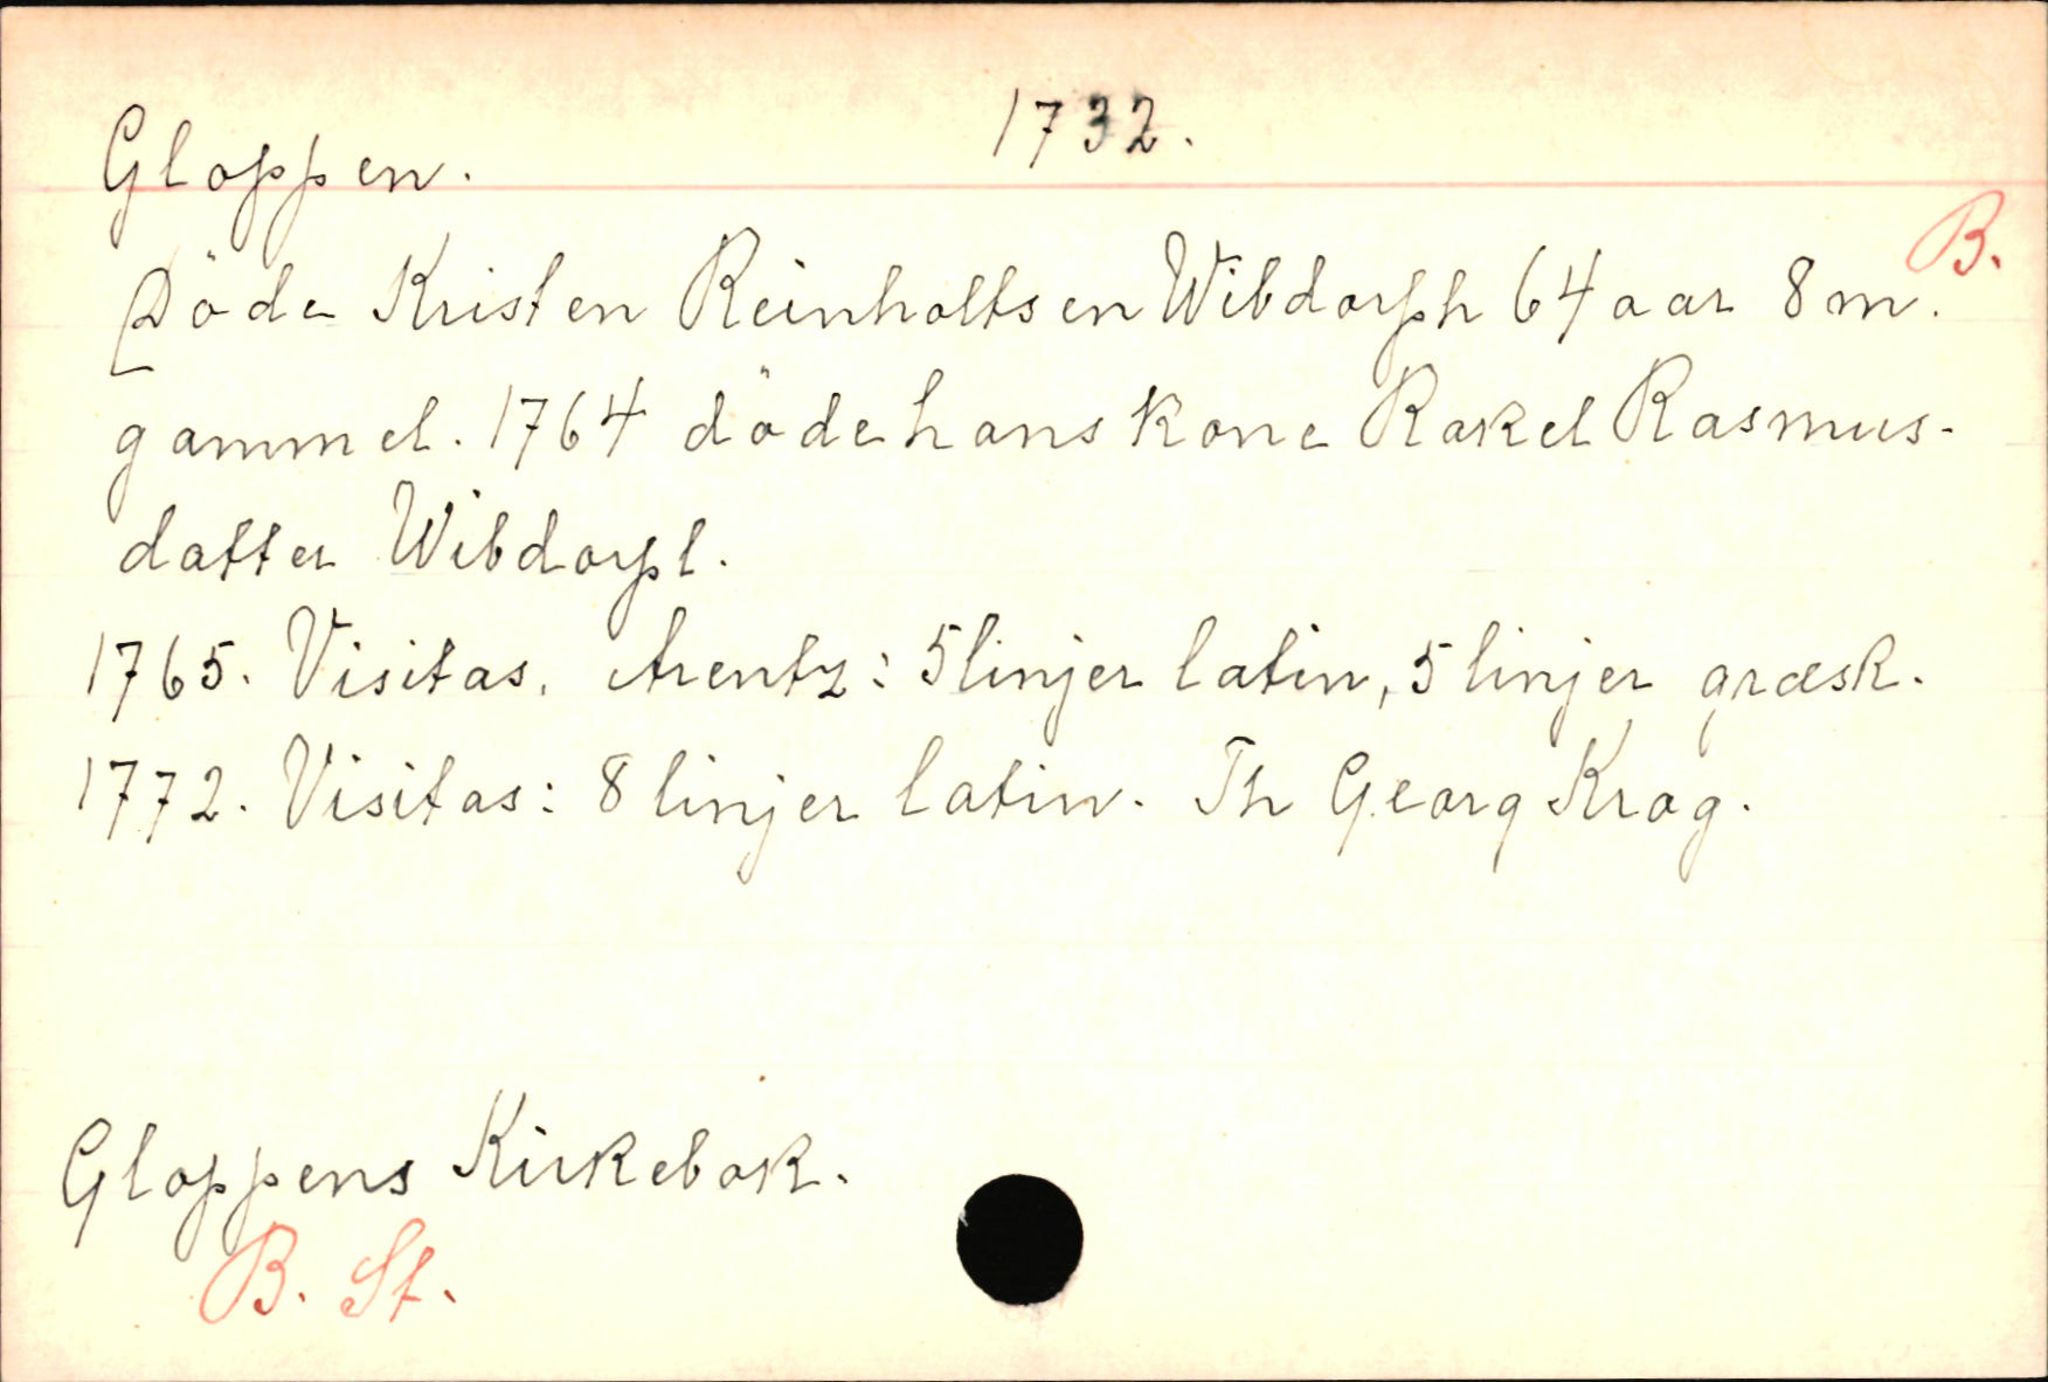 Gloppen. 1732.
B.
Döde Kristen Reinholtsen Wibdorph 64 aar 8 m.
gammel. 1764 döde hans kone Rakel Rasmus-
datter Wibdorph.
1765. Visitas. Arentz: 5 linjer latin, 5 linjer græsk.
1772. Visitas: 8 linjer latin. Th Georg Krog.
Gloppens Kirkebok.
B. St.